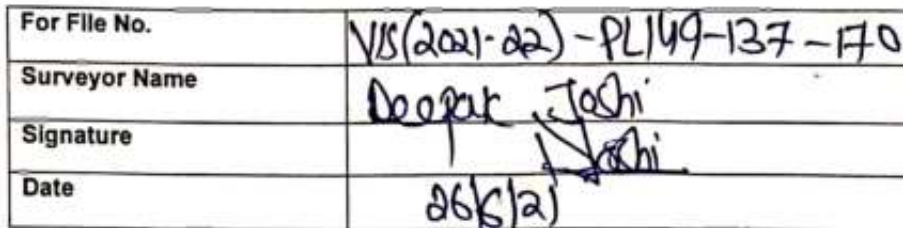 For File No. VIS(2021-22)-PL149-137-170
Surveyor Name Deepak Joshi
Signature Joshi
Date 26/6/21